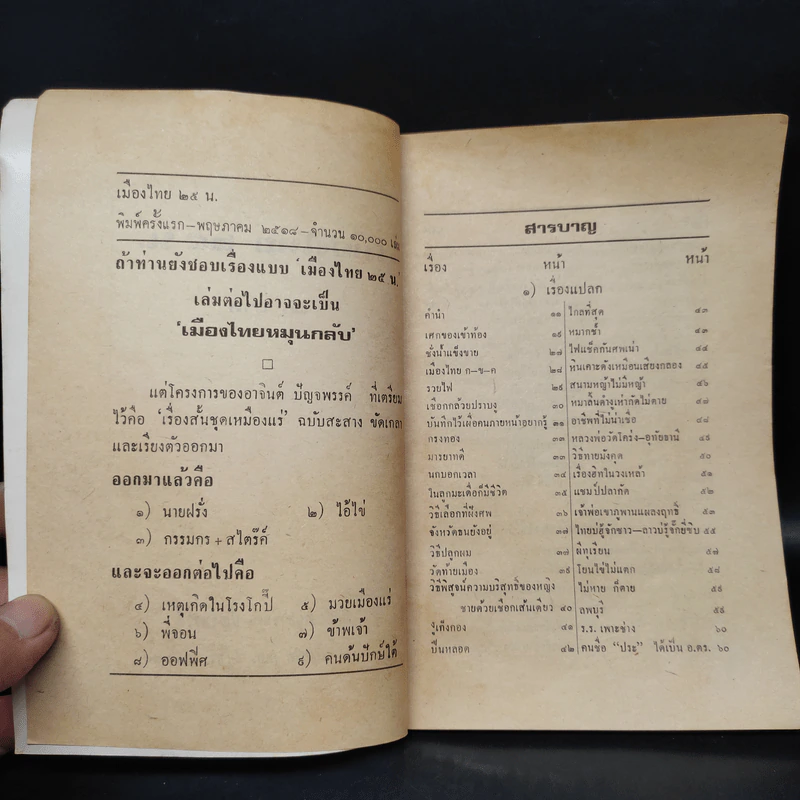 เมืองไทย ๒๕ น.
พิมพ์ครั้งแรก–พฤษภาคม ๒๕๑๘–จำนวน ๑๐,๐๐๐ เล่ม
ถ้าท่านยังชอบเรื่องแบบ 'เมืองไทย ๒๕ น.'
เล่มต่อไปอาจจะเป็น
'เมืองไทยหมุนกลับ'
แต่โครงการของอาจินต์ ปัญจพรรค์ ที่เตรียม
ไว้คือ 'เรื่องสั้นชุดเหมืองแร่' ฉบับสะสาง ขัดเกลา
และเรียงตัวออกมา
ออกมาแล้วคือ
๑) นายฝรั่ง ๒) ไอ้ไข่
๓) กรรมกร + สไตร๊ค์
และจะออกต่อไปคือ
๔) เหตุเกิดในโรงโกปี๊ ๕) มวยเมืองแร่
๖) พี่จอน ๗) ข้าพเจ้า
๘) ออฟฟิศ ๙) คนดันปักษ์ใต้
สารบาญ
เรื่อง หน้า หน้า
๑) เรื่องแปลก
คำนำ ๑๑ ใกลที่สุด ๔๓
เศกของเข้าท้อง ๑๙ หมากช้ำ ๔๓
ชั่งน้ำแข็งขาย ๒๗ ไฟแช็คกันศพเน่า ๔๔
เมืองไทย ก–ข–ค ๒๘ หินเคาะดังเหมือนเสียงกลอง ๔๕
รวยไฟ ๒๙ สนามหญ้าไม่มีหญ้า ๔๖
เชือกกล้วยปราบงู ๓๐ หมาลิ้นดำงูเห่ากัดไม่ตาย ๔๗
บันทึกไว้เผื่อคนภายหน้าอยากรู้ ๓๑ อาชีพที่ไม่น่าเชื่อ ๔๘
กรงทอง ๓๓ หลวงพ่อวัดโคร่ง–อุทัยธานี ๔๙
มารยาทดี ๓๓ วิธีทายมังคุด ๕๐
นกบอกเวลา ๓๔ เรื่องฮิทในวงเหล้า ๕๑
ในลูกมะเดื่อก็มีชีวิต ๓๕ แชมป์ปลากัด ๕๒
วิธีเลือกที่ฝังศพ ๓๖ เจ้าพ่อเขาภูพานแผลงฤทธิ์ ๕๓
จังหวัดธนยังอยู่ ๓๗ ไทยบ่ฮู้จักซาว–ลาวบ่รู้จั๊กยี่ขิบ ๕๕
วิธีปลูกผม ๓๗ ผีทุเรียน ๕๗
วัดท้ายเมือง ๓๙ โยนไข่ไม่แตก ๕๘
วิธีพิสูจน์ความบริสุทธิ์ของหญิง ไม่หาย ก็ตาย ๕๙
ชายด้วยเชือกเส้นเดียว ๔๐ ลพบุรี ๕๙
งูเที่งคอง ๔๑ ร.ร. เพาะช่าง ๖๐
ปืนหลอด ๔๒ คนชื่อ "ประ" ได้เป็น อ.ตร. ๖๐